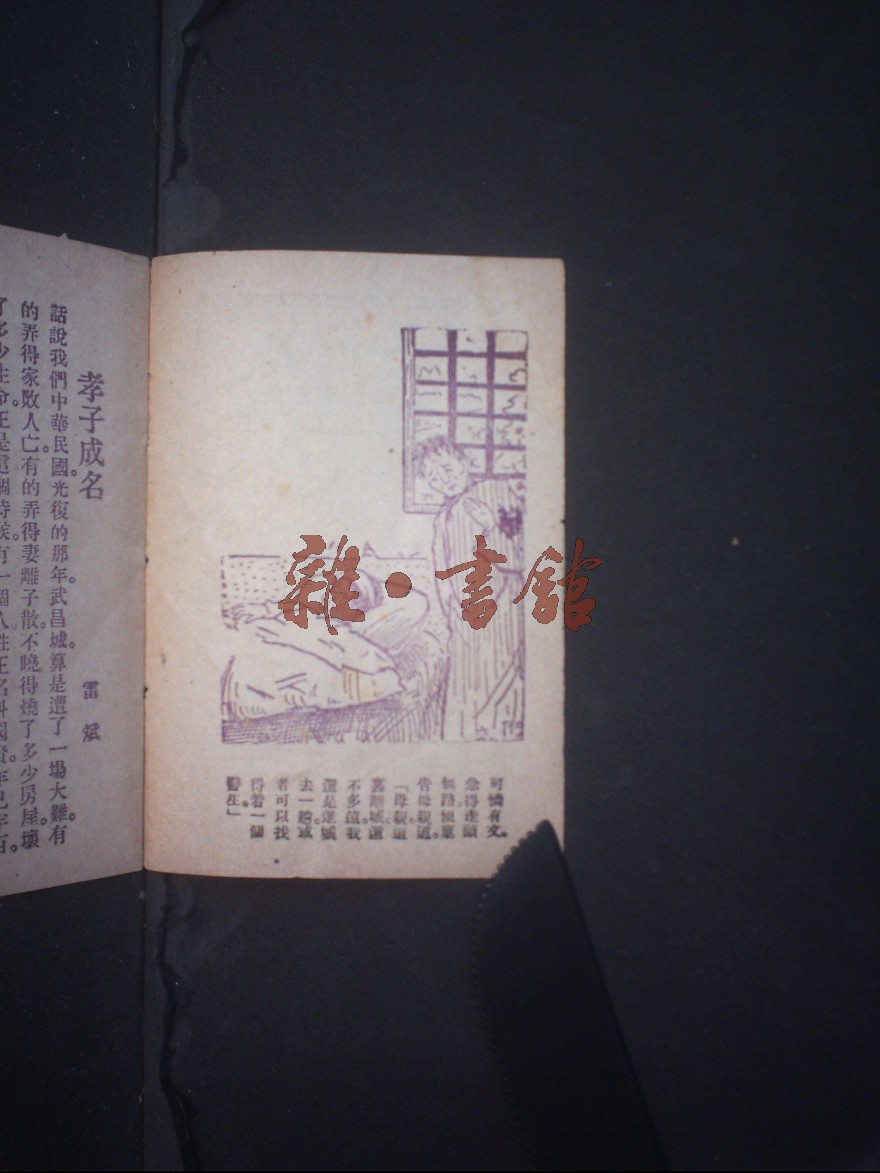 可憐有文。
急得走頭
無路。便稟
告母親道。
「母親。這
裏離城還
不多遠我
還是進城
去一趟。或
者可以找
得着一個
醫生。」
孝子成名
雷斌
話說我們中華民國光復的那年。武昌城。算是遭了一場大難有
的弄得家敗人亡。有的弄得妻離子散。不曉得燒了多少房屋。壞
了多少生命。正是這個時候。有一個人姓王名叫國賢。年已
雜·書館